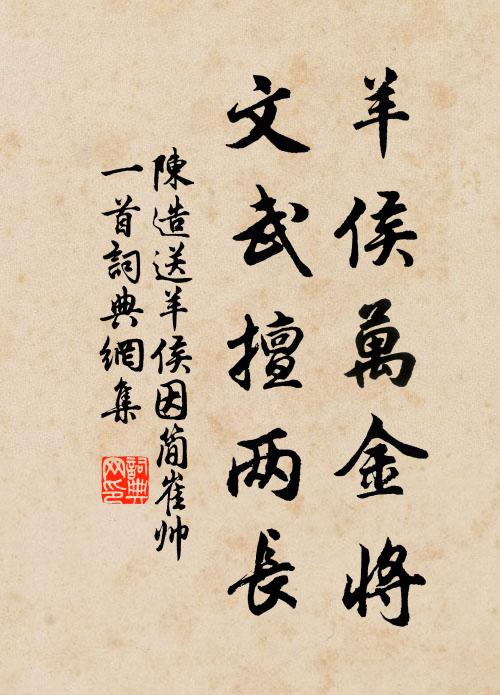 羊侯萬金將
文武擅两長
陳造送羊侯因簡崔帅
一首詞典網集
詞典网印